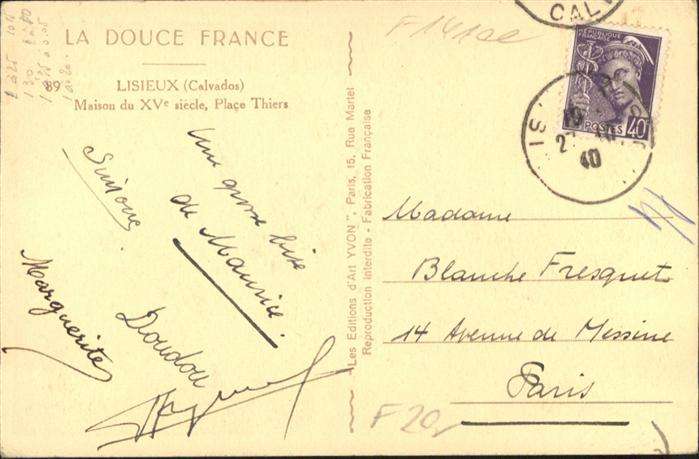 LA DOUCE FRANCE
89
LISIEUX (Calvados)
Maison du XVe siècle, Place Thiers
Une grosse bise
de Maurice.
Simone
Marguerite
Doudou
"Les Editions d'Art YVON", Paris, 15, Rue Martel
Reproduction Interdite - Fabrication Française
CAL
REPUBLIQUE
FRANÇAISE
POSTES
40c
IS
19
40
Madame
Blanche Fresquet
14 Avenue de Messine
Paris